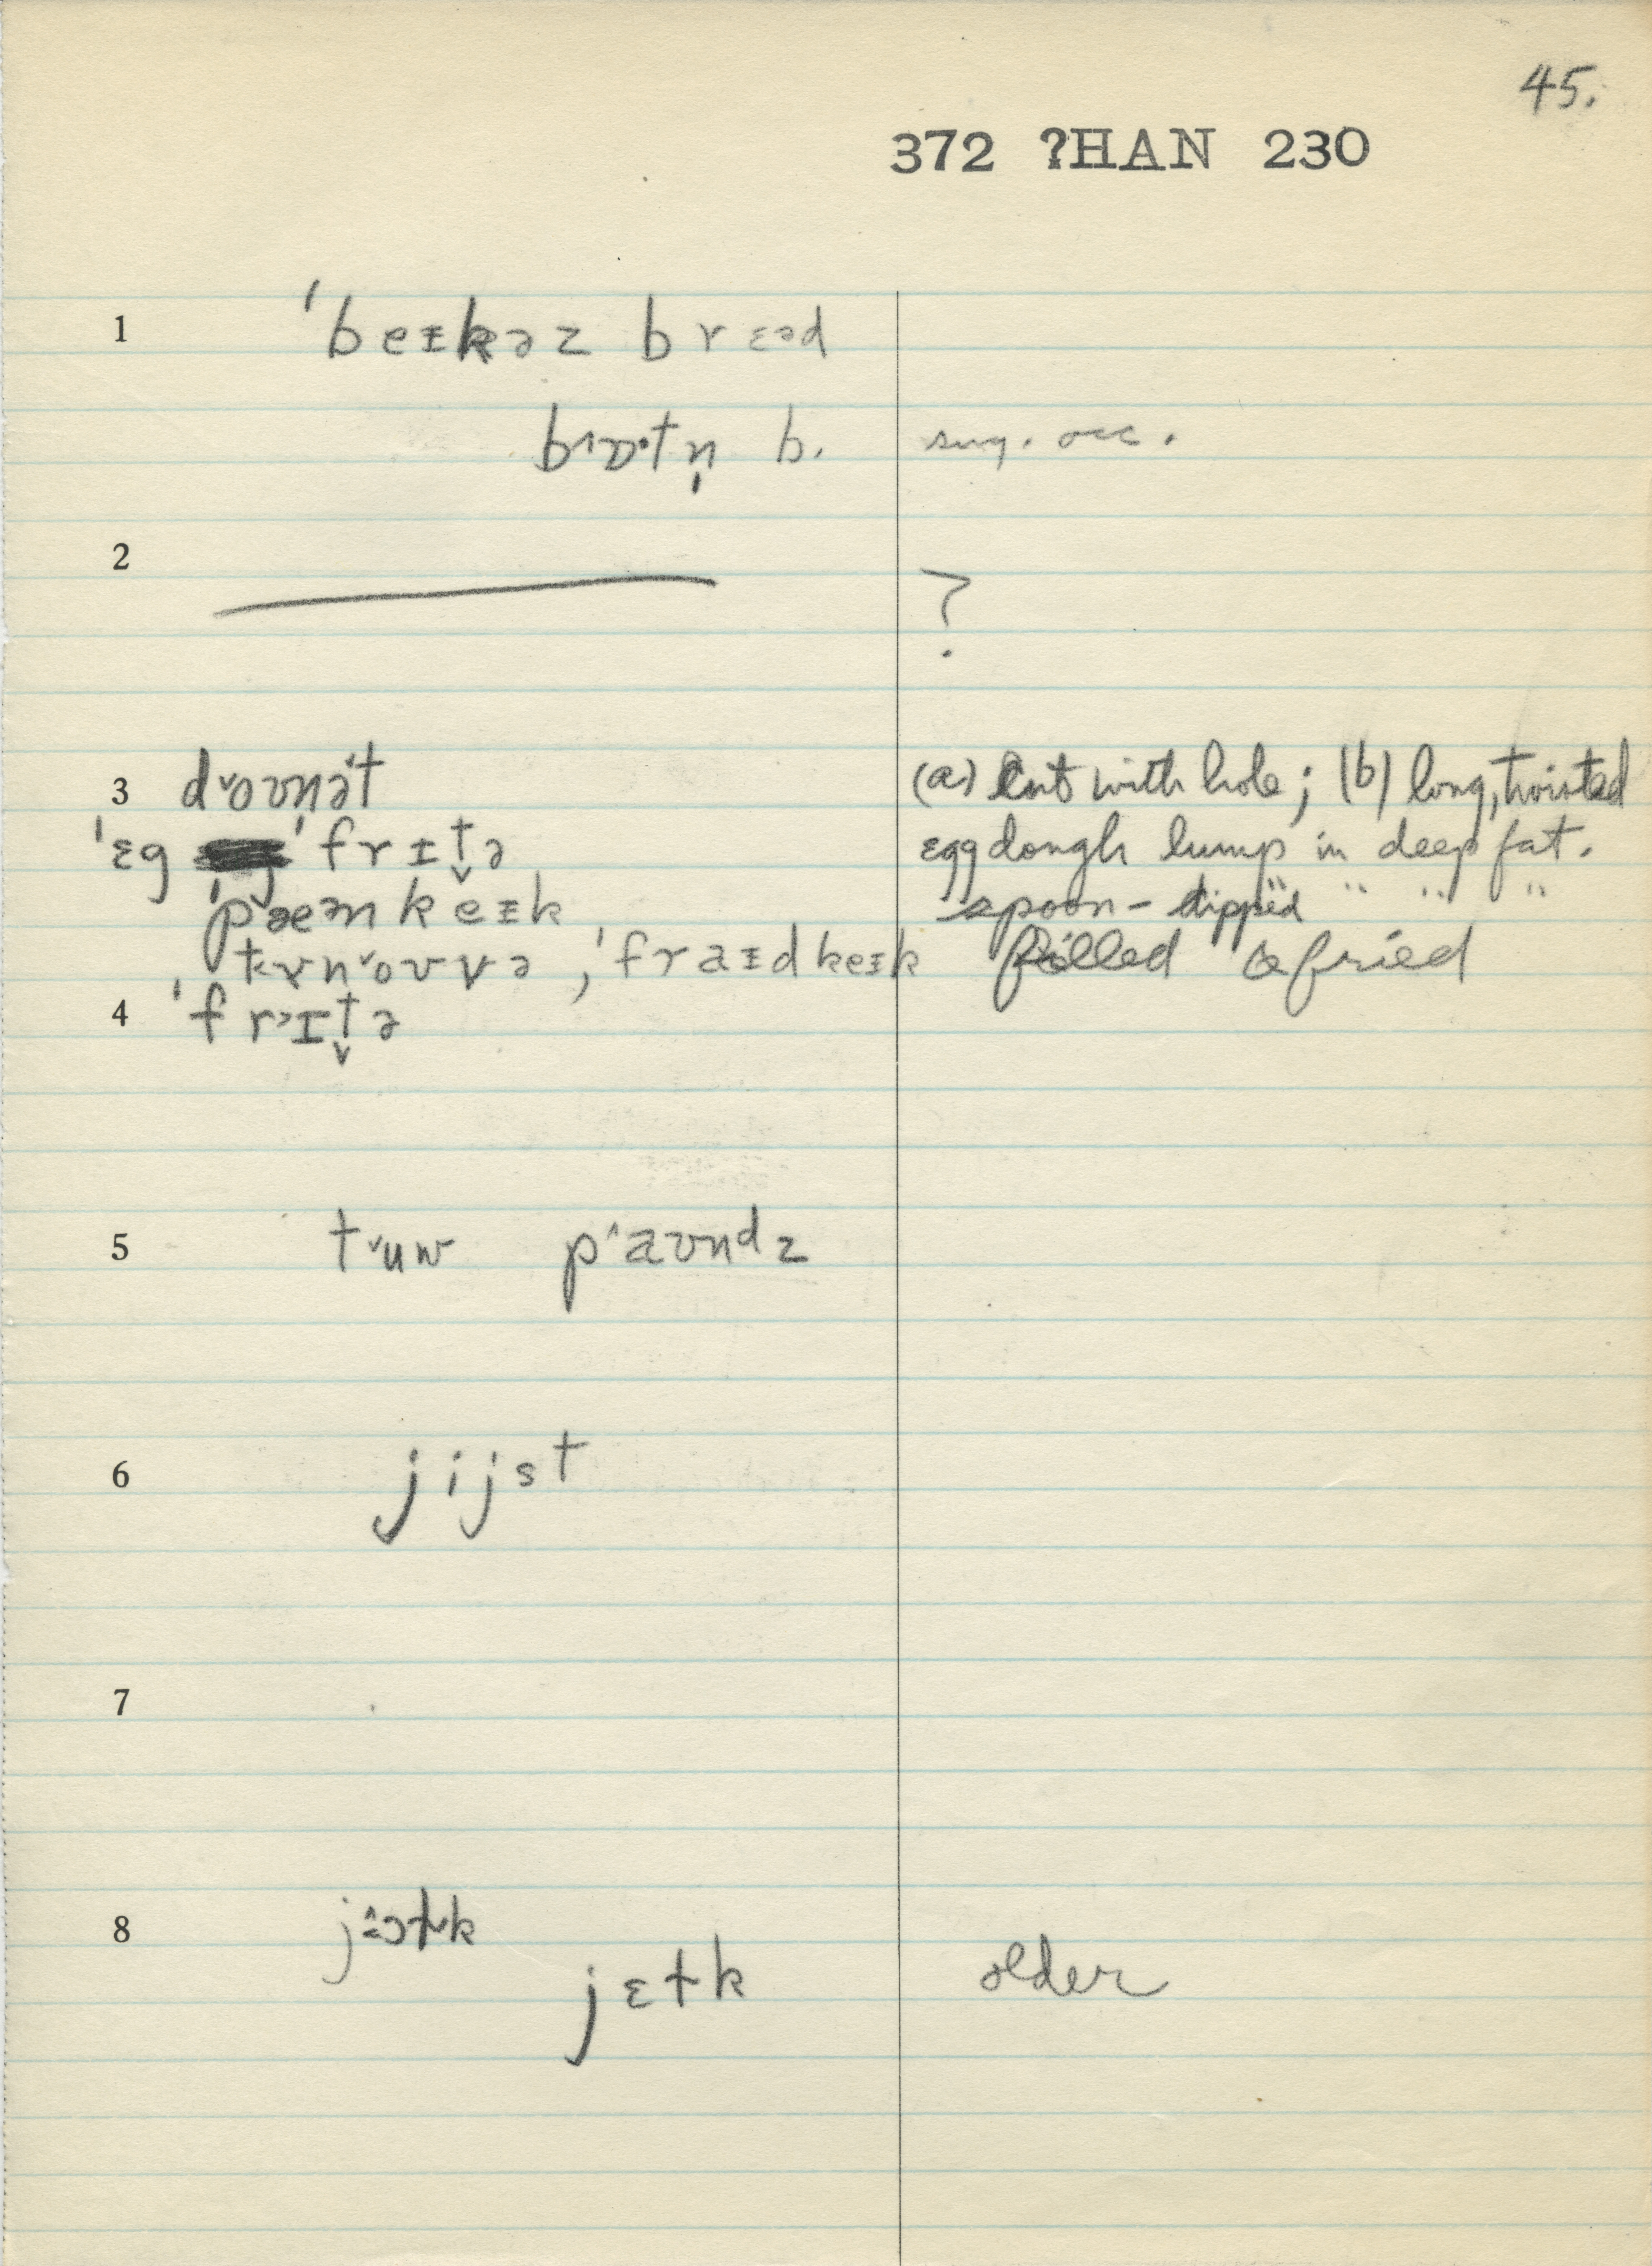 45.
372 ʔHAN 230
1 ˈbeɪkəz brɛəd
b. sug. occ.
2 ?
3 d˅oʊnə̍t (a) cut with hole; (b) long, twisted
ˈɛg ˈfrɪt̬ə egg dough lump in deep fat.
ˈpæənkeɪk spoon-dipped " " " "
tɤn˅oʊvə, ˈfraɪdkeɪk filled & fried
4 ˈfr˃ɪt̬ə
5 t˅uw p˄aʊndz
6 jijst
7
8
jɛɫk older